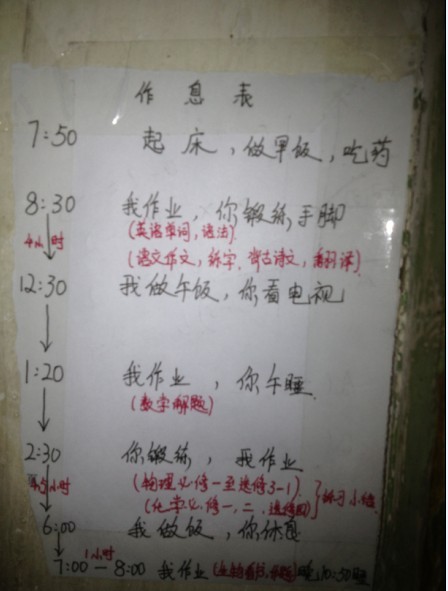 作息表
7:50 起床，做早饭，吃药
8:30 我作业，你锻练手脚
4小时 (英语单词，语法)
(语文作文，练字，背古诗文，翻译)
12:30 我做午饭，你看电视
1:20 我作业，你午睡
(数学解题)
2:30 你锻练，我作业
小时 (物理必修一至选修3-1)
(化学必修一，二，选修四) 练习
6:00 我做饭，你休息
1小时
7:00－8:00 我作业 晚10:30睡